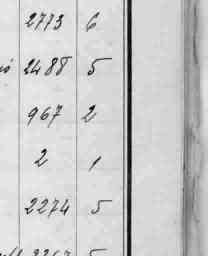 2773 6
2488 5
967 2
2 1
2274 5